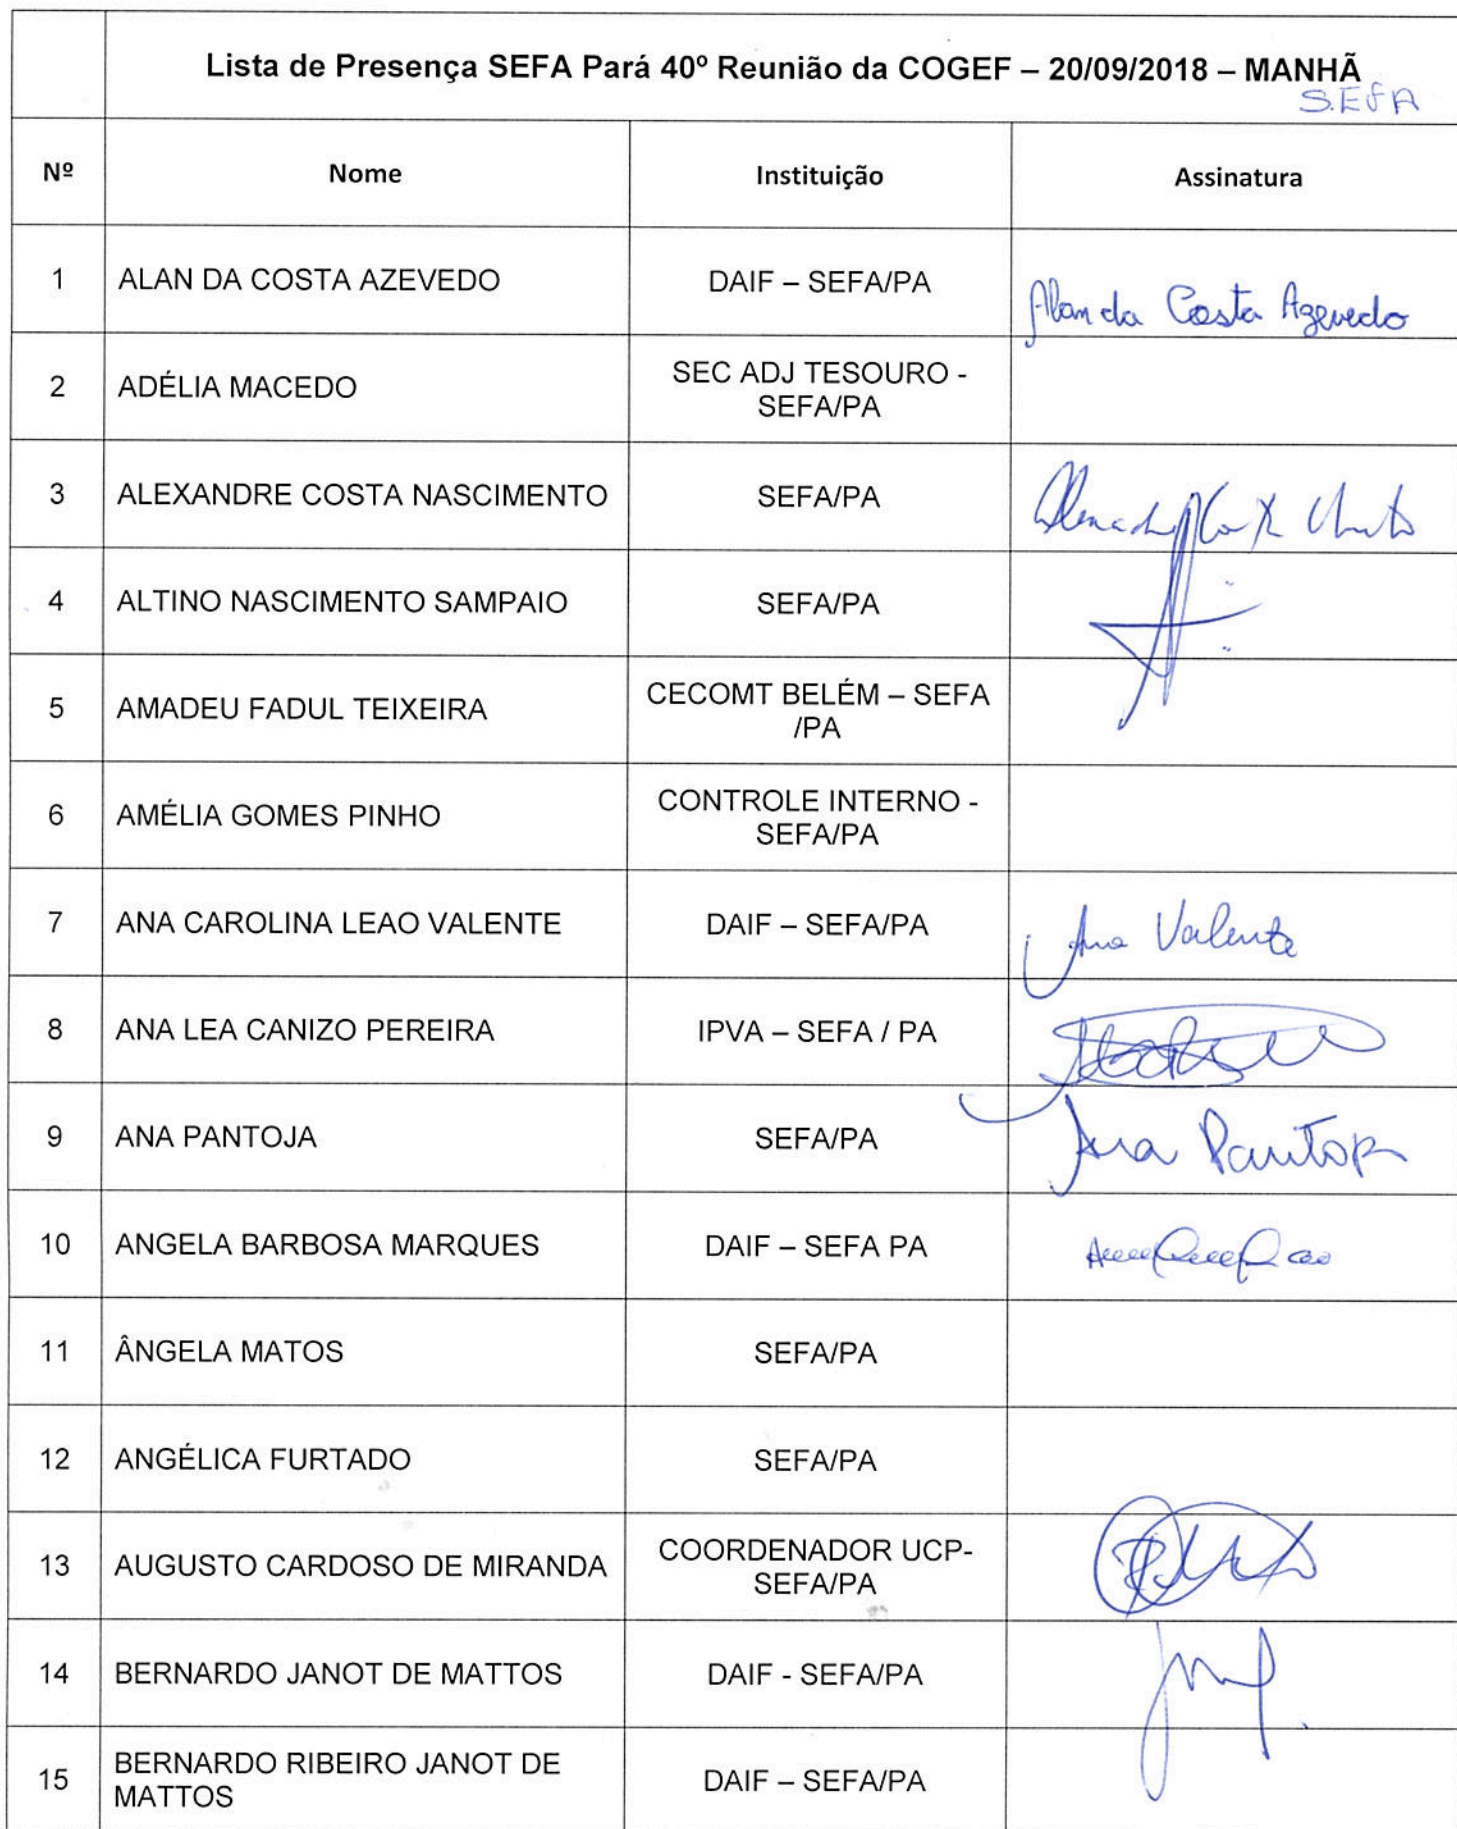 Lista de Presença SEFA Pará 40º Reunião da COGEF – 20/09/2018 – MANHÃ
SEFA
Nº Nome Instituição Assinatura
1 ALAN DA COSTA AZEVEDO DAIF – SEFA/PA Alan da Costa Azevedo
2 ADÉLIA MACEDO SEC ADJ TESOURO -
SEFA/PA
3 ALEXANDRE COSTA NASCIMENTO SEFA/PA
4 ALTINO NASCIMENTO SAMPAIO SEFA/PA
5 AMADEU FADUL TEIXEIRA CECOMT BELÉM – SEFA
/PA
6 AMÉLIA GOMES PINHO CONTROLE INTERNO -
SEFA/PA
7 ANA CAROLINA LEAO VALENTE DAIF – SEFA/PA Ana Valente
8 ANA LEA CANIZO PEREIRA IPVA – SEFA / PA
9 ANA PANTOJA SEFA/PA Ana Pantoja
10 ANGELA BARBOSA MARQUES DAIF – SEFA PA
11 ÂNGELA MATOS SEFA/PA
12 ANGÉLICA FURTADO SEFA/PA
13 AUGUSTO CARDOSO DE MIRANDA COORDENADOR UCP-
SEFA/PA
14 BERNARDO JANOT DE MATTOS DAIF - SEFA/PA
15 BERNARDO RIBEIRO JANOT DE
MATTOS DAIF – SEFA/PA